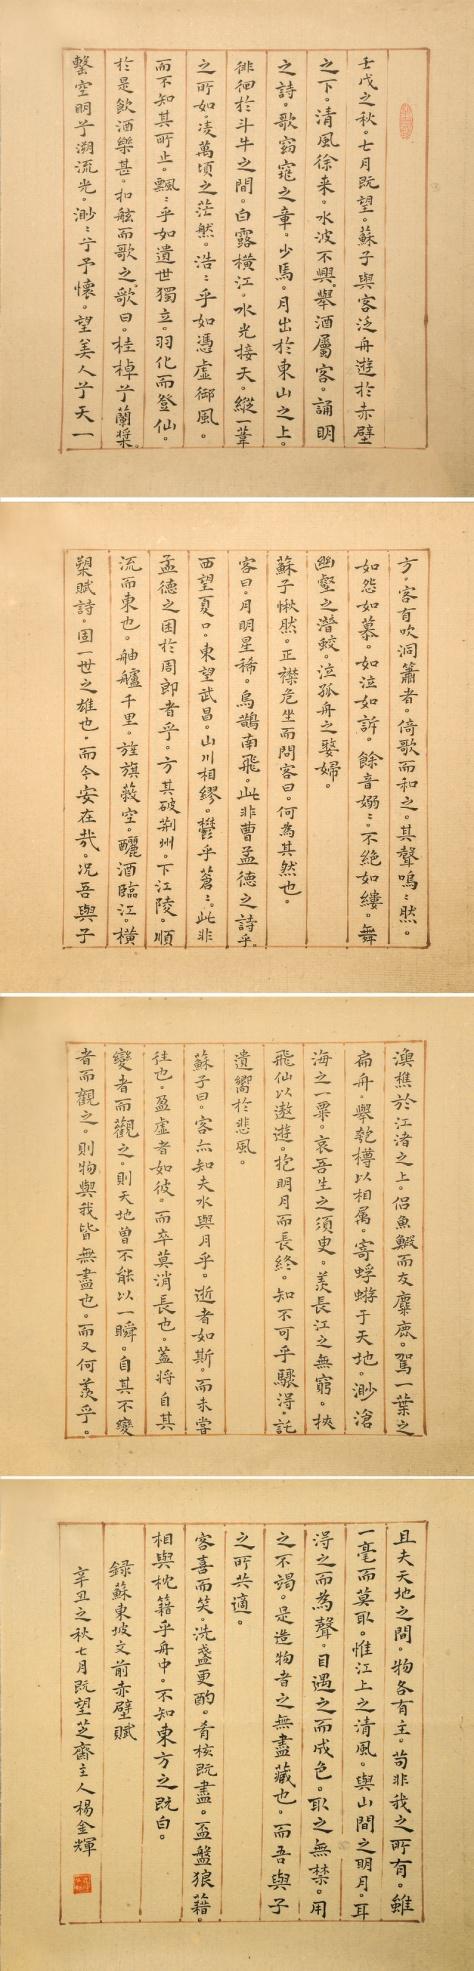 壬戌之秋。七月既望。蘇子與客泛舟遊於赤壁
之下。清風徐来。水波不興。舉酒屬客。誦明月
之詩。歌窈窕之章。少焉。月出於東山之上。
徘徊於斗牛之間。白露橫江。水光接天。縱一葦
之所如。凌萬頃之茫然。浩〻乎如馮虛御風。
而不知其所止。飄〻乎如遺世獨立。羽化而登仙。
於是飲酒樂甚。扣舷而歌之。歌曰。桂棹兮蘭槳。
擊空明兮溯流光。渺〻兮予懷。望美人兮天一
方。客有吹洞簫者。倚歌而和之。其聲嗚〻然。
如怨如慕。如泣如訴。餘音嫋〻。不絕如縷。舞
幽壑之潛蛟。泣孤舟之嫠婦。
蘇子愀然。正襟危坐而問客曰。何為其然也。
客曰。月明星稀。烏鵲南飛。此非曹孟德之詩乎。
西望夏口。東望武昌。山川相繆。鬱乎蒼〻。此非
孟德之困於周郎者乎。方其破荆州。下江陵。順
流而東也。舳艫千里。旌旗蔽空。釃酒臨江。橫
槊賦詩。固一世之雄也。而今安在哉。况吾與子
漁樵於江渚之上。侶魚鰕而友麋鹿。駕一葉之
扁舟。舉匏樽以相属。寄蜉蝣于天地。渺滄
海之一粟。哀吾生之須臾。羡長江之無窮。挾
飛仙以遨遊。抱明月而長終。知不可乎驟得。託
遺響於悲風。
蘇子曰。客亦知夫水與月乎。逝者如斯。而未嘗
往也。盈虛者如彼。而卒莫消長也。蓋將自其
變者而觀之。則天地曾不能以一瞬。自其不變
者而觀之。則物與我皆無盡也。而又何羨乎。
且夫天地之間。物各有主。苟非我之所有。雖
一毫而莫取。惟江上之清風。與山間之明月。耳
得之而為聲。目遇之而成色。取之無禁。用
之不竭。是造物者之無盡藏也。而吾與子
之所共適。
客喜而笑。洗盞更酌。肴核既盡。盃盤狼藉。
相與枕籍乎舟中。不知東方之既白。
録蘇東坡文前赤壁賦
辛丑之秋七月既望芝齋主人楊金輝